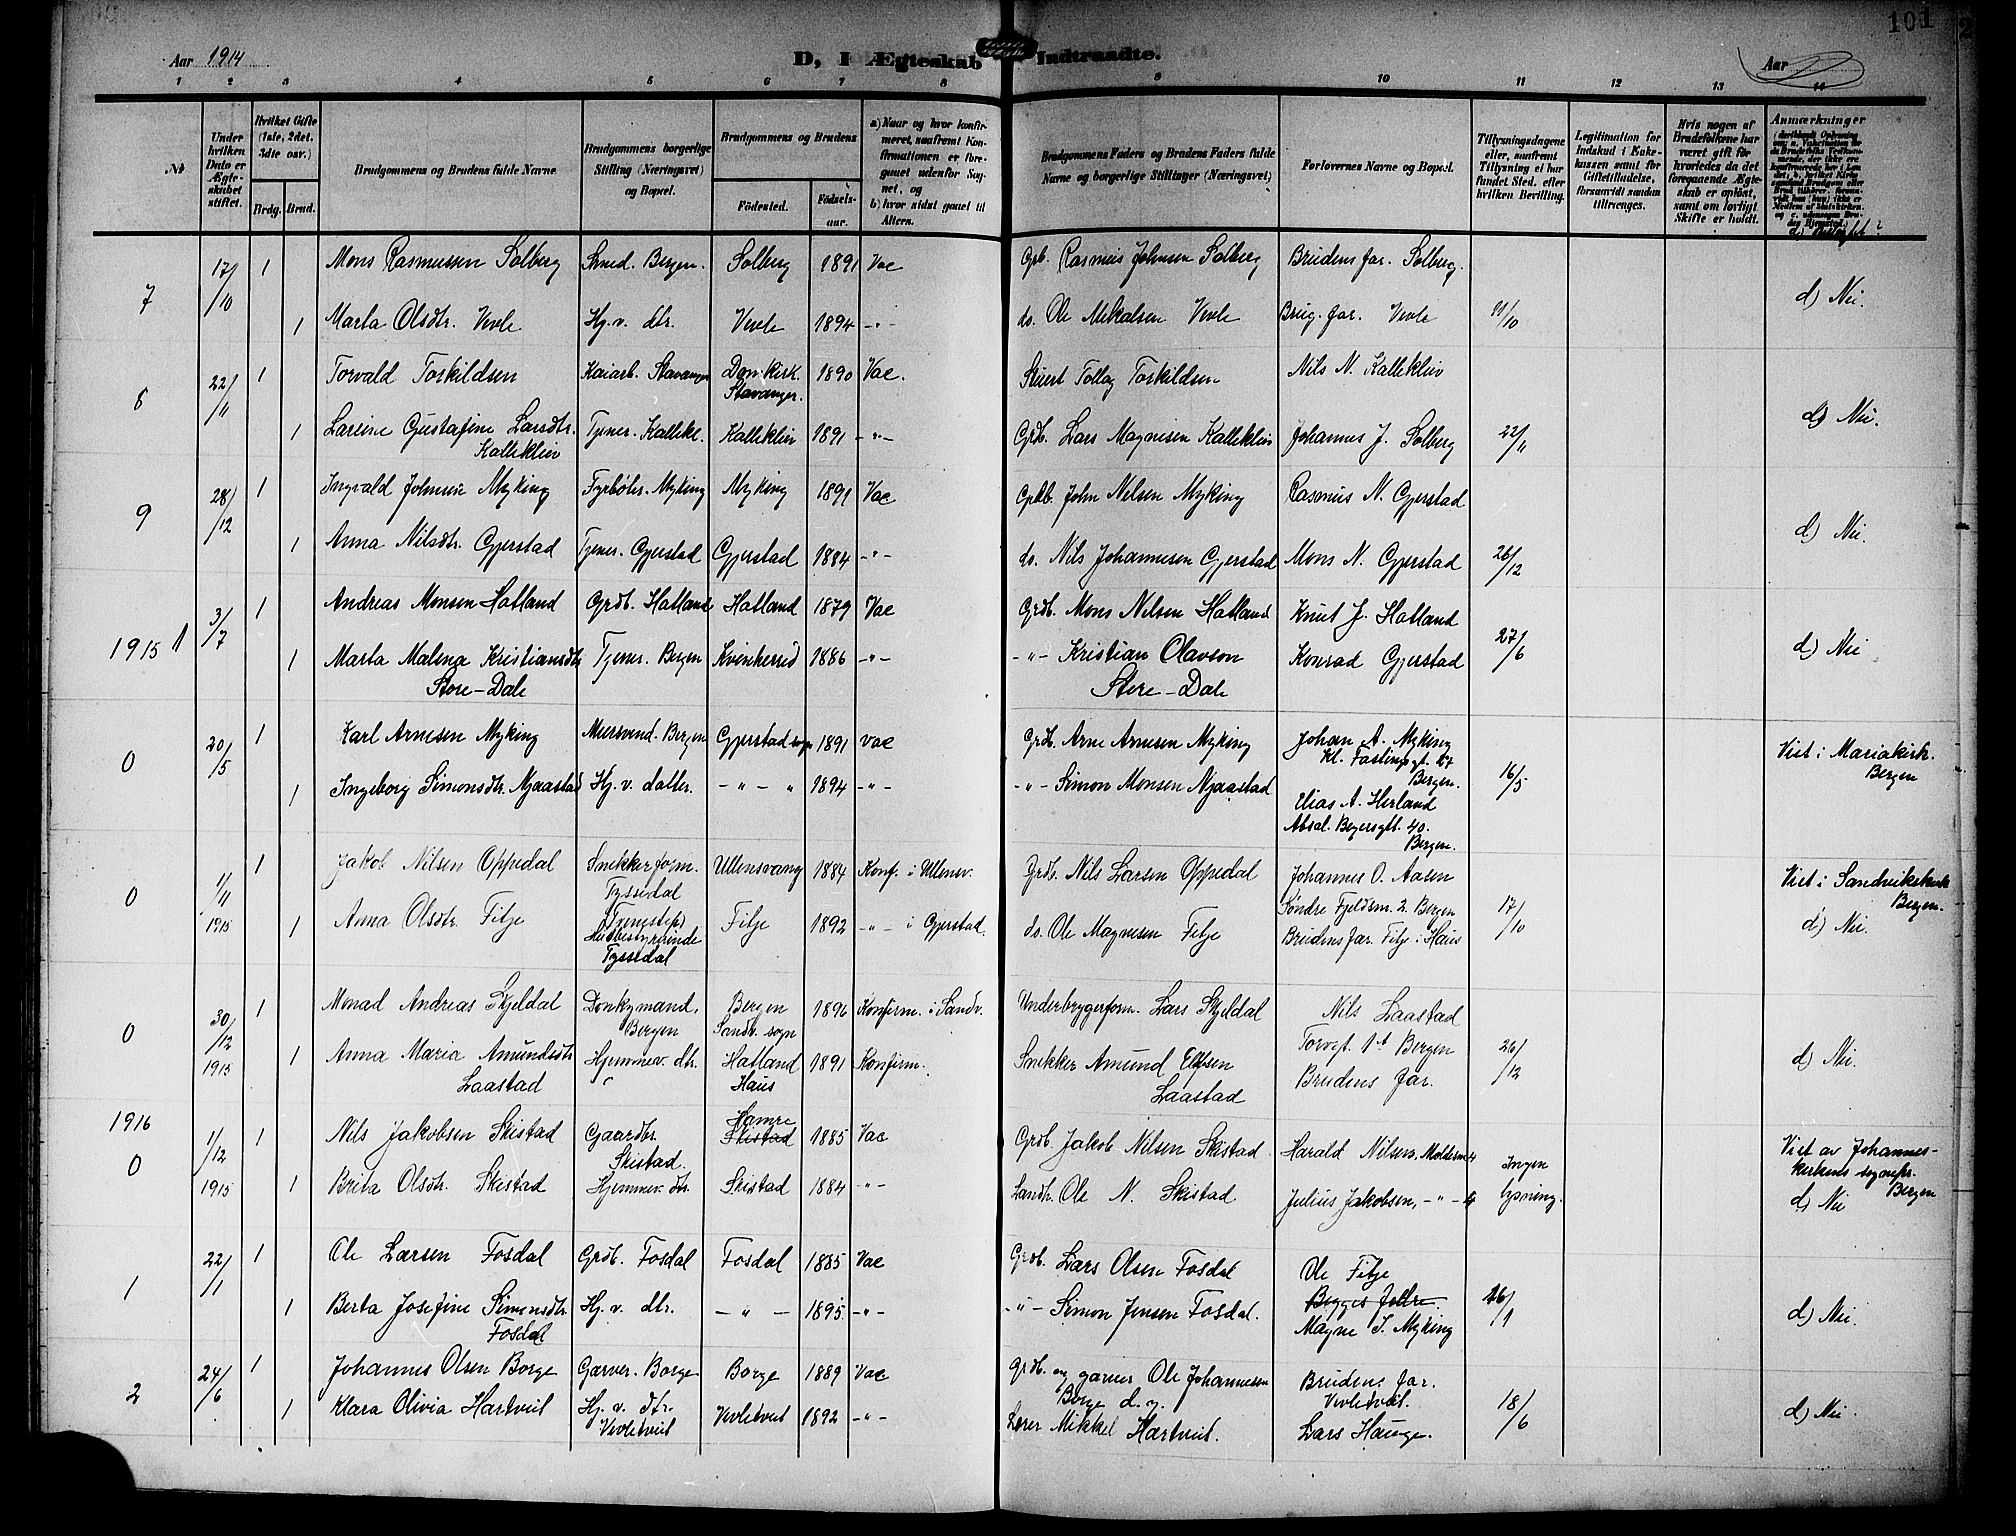 101
Aar 1914
D, I Ægteskab Indtraadte.
Aar
1 2 3 4 5 6 7 8 9 10 11 12 13 14
No
Under hvilken Dato er Ægteskabet stiftet.
Hvilket Gifte (1ste, 2det, 3die osv.)
Brdg. Brud.
Brudgommens og Brudens fulde Navne
Brudgommens borgerlige Stilling (Næringsvei) og Bopæl.
Brudgommens og Brudens
Fødested. Fødselsaar.
a) Naar og hvor konfirmeret, saafremt Konfirmationen er foregaaet udenfor Sognet, og
b) hvor sidst gaaet til Alters.
Brudgommens Faders og Brudens Faders fulde Navne og borgerlige Stillinger (Næringsvei)
Forlovernes Navne og Bopæl.
Tillysningsdagene eller, saafremt Tillysning ei har fundet Sted, efter hvilken Bevilling.
Legitimation for Indskud i Enkekassen samt for Giftetilladelse, forsaavidt saadan tiltrænges.
Hvis nogen af Brudefolkene har været gift før hvorledes da det foregaaende Ægteskab er opløst, samt om lovligt Skifte er holdt.
Anmærkninger
7 17/10 1 Mons Rasmussen Solberg Smed. Bergen. Solberg 1891 Vac Grb. Rasmus Johnsen Solberg Brudens far. Solberg.
d) Nei.
1 Marta Olsdtr. Vevle Hj. v. dtr. Vevle 1894 -"- do. Ole Mikalsen Vevle Brug. far. Vevle 11/10
8 22/11 1 Torvald Torkildsen Kaiarb. Stavanger Dom.kirk. Stavanger. 1890 Vac. Stuert Tollag Torkildsen Nils N. Kalleklev
d) Nei.
1 Larine Gustafine Larsdtr. Kalleklev Tjener. Kallekl. Kalleklev 1891 -"- Grdb. Lars Magnesen Kalleklev Johannes J. Solberg 22/11
9 28/12 1 Ingvald Johnsen Myking Fyrbøter. Myking Myking 1891 Vac Grdb. John Nilsen Myking Rasmus N. Gjerstad
d) Nei.
1 Anna Nilsdtr. Gjerstad Tjener. Gjerstad Gjerstad 1884 -"- do. Nils Johannesen Gjerstad Mons N. Gjerstad 26/12
1915 1 3/7 1 Andreas Monsen Hatland Grdb. Hatland Hatland 1879 Vac Grdb. Mons Nilsen Hatland Knut J. Hatland
d) Nei
1 Marta Malena Kristiansdtr Store-Dale Tjener. Bergen Kvinherred 1886 -"- -"- Kristian Olavson Store-Dale Konrad Gjerstad 27/6
0 20/5 1 Karl Arnesen Myking Murersvend. Bergen Gjerstad sogn 1891 Vac Grdb. Arne Arnesen Myking Johan A. Myking Kl. Fastingsgt. 17 Bergen.
Viet i Mariakirk. Bergen
1 Ingeborg Simonsdtr. Mjaastad Hj. v. datter. -"- " 1894 -"- -"- Simon Monsen Mjaastad Elias A. Herland Absal. Beyersgt. 40. Bergen. 16/5
0 1/11 1915 1 Jakob Nilsen Oppedal Snekkerform. Tyssedal Ullensvang 1884 Konf. i Ullensv. Grdb. Nils Larsen Oppedal Johannes O. Aasen Søndre Fjeldsm. 2. Bergen
Viet i Sandvikskirk Bergen.
d) Nei.
1 Anna Olsdtr. Fitje Husbestyrerinde Tyssedal Fitje 1892 -"- i Gjerstad. do. Ole Magnesen Fitje Brudens far Fitje i Haus 17/10
0 30/12 1915 1 Monad Andreas Skjeldal Donkymand. Bergen Bergen Sandv. sogn 1896 Konfirm. i Sandv. Underbryggerform. Lars Skjeldal Nils Laastad Torvgt. 1A Bergen
d) Nei.
1 Anna Maria Amundsdtr Laastad Hjemmev. dtr. Hatland Haus 1891 Konfirm. Snekker Amund Elfsen Laastad Brudens far. 26/12
1916
0 1/12 1915 1 Nils Jakobsen Skistad Gaardbr. Skistad. Hamre Skistad 1885 Vac Grdb. Jakob Nilsen Skistad Harald Nilsen, Molderm 4 Ingen lysning.
Viet av Johanneskirkens sognepr. Bergen
d) Nei
1 Brita Olsdtr. Skistad Hjemmev. dtr. Skistad 1884 -"- Landh. Ole N. Skistad. Julius Jakobsen, -"- 4
1 22/1 1 Ole Larsen Fosdal Grdb. Fosdal Fosdal 1885 Vac Grdb. Lars Olsen Fosdal Ole Fitje
Begges fedre.
d) Nei.
1 Berta Josefine Simonsdtr Fosdal Hj. v. dtr. -"- 1895 -"- -"- Simon Jensen Fosdal. Magne S. Myking 16/1
2 24/6 1 Johannes Olsen Borge Garver. Borge Borge 1889 Vac Grdb. og garver Ole Johannesen Borge d. y. Brudens far. Vevletveit.
d) Nei.
1 Klara Olivia Hartveit Hj. v. dtr. Vevletveit Vevletveit 1892 -"- Lærer Mikkel Hartveit. Lars Hauge. 18/6